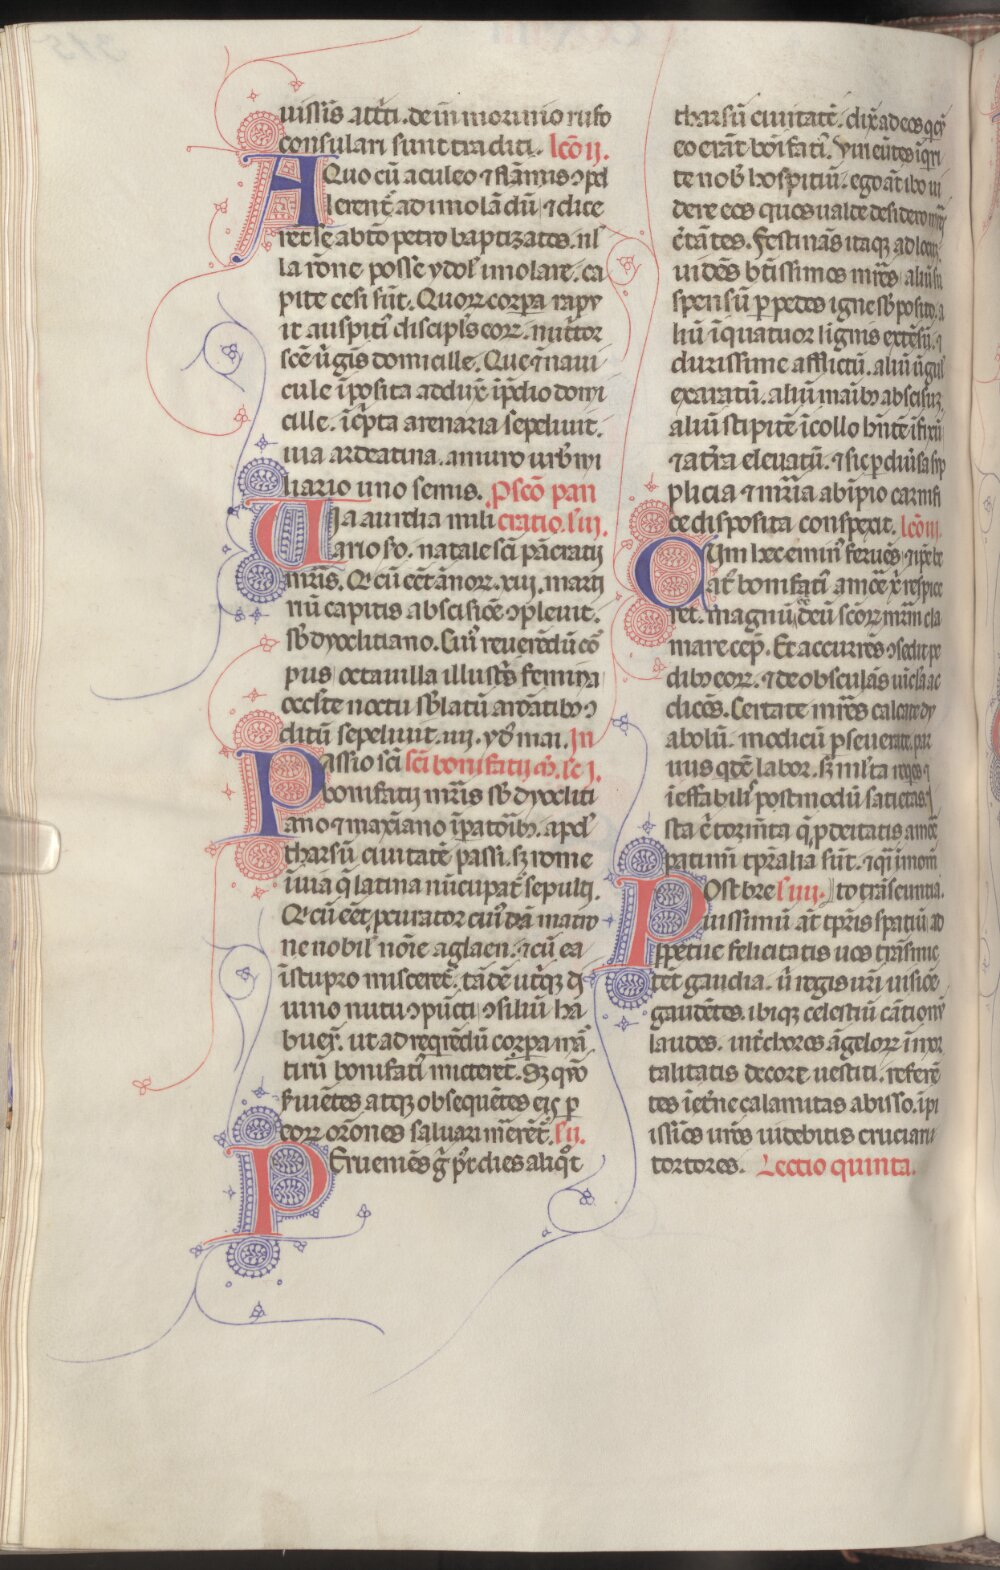 uissis͂ att͂ti. de in morinio rufo
consulari sunt traditi. lc͂o ij.
A Quo cū aculeo ⁊ flāmis ꝯpel
lerent᷑ ad imolādū ⁊ dice
ret se a bt͂o petro baptizatos. nl̓
la rōne posse ydol̓ imolare. ca
pite cesi sūt. Quoꝝ corpora rapu
it auspiti discipl̓s eoꝝ. nutᷓtor
sc͂e v̓gis domicille. Que ⁊ naui
cule īposita addux͂ ī p̄dio domi
cille. ī c̓pta arenaria sepeliuit.
uia ardeatina. a muro urb̓ mi
liario uno semis. P sc͂o pan
Uia aurelia mili cratio. l̓ iij.
ario s̓o. natale sc͂i pācratij
mr͂is. Qi cū eēt ānoꝝ. xiiij. marti
riū capitis abscisiōe ꝯpleuit.
sb̓ dyoclitiano. Cui᷒ reuerēdū co᷒
pus octauilla illustᷓs femina
occl̓te noctu sb̓latū arōatib᷒ ꝯ
ditū sepeliuit. iiij. yd᷒ mai. In
Passio sc͂i sc͂i bonifatij m͂. lc͂ I.
bonifatij mr͂is sb̓ dyocliti
ano ⁊ maxīano īpatorib᷒. apd̓
tharsū ciuitatē passi. sꝫ rome
ī uia q̄ latina nūcupat᷑ sepulti.
Qi cū eēt ꝓcurator cui᷒dā matro
ne nobil̓ noīe aglaen. ⁊ cū ea
ī stupro misceret᷑. tādē ut̓qꝫ di
uino nutu ꝯpūcti ꝯsiliū ha
buer͂. ut ad reqrēdū corpora mᷓ
tirū bonifati᷒ micteret᷑. Sꝫ qm̄o
s̓uiētes atqꝫ obsequētes eis p
eoꝝ or͂ones saluari m̄erēt᷑. l̓ ij.
P Erueniēs g̓ pᷣ dies aliqᷣt
tharsū ciuitatē. dix̄ ad eos qi cū
eo erāt bōifati᷒. Vin cūtes iq̓ri
te nob̓ hospitiū. ego at̄ ibo ui
dere eos quos ualde desidero
c̓tātes. Festinās itaqꝫ ad locū
uidēs bt͂issimos mr͂es aliū su
spensū p pedes igne sb̓posito. a
liū ī quatuor lignis extēsū. ⁊
durissime afflictū. aliū ūgul̓
exaratū. aliū maib᷒ abscisuꝫ
aliū stipitē ī collo hn̄tē ifixū
⁊ a tr̄a eleuatū. ⁊ sic p diūsa sup
plicia ⁊ mr͂ia ab īpio carnifi
ce disposita conspexit. lc͂o iij.
Cum hec eminu᷒ feruēs ⁊ ꝓbe
at᷒ bonifati᷒ amōe xp̄i respice
ret. magnū deū sc͂oꝝ mr͂m cla
mare cep̄. Et accurrēs ꝯsedit pe
dib᷒ eoꝝ. ⁊ deobsculās uicla ac
dicēs. Certate mr͂es calcate dy
abolū. modicū p seuerate. par
uus qd̄ē labor. sꝫ ml̓ta reqes ⁊
ī effabilis postmodū satietas.
sta ē tormēta q̄ p deitatis amōe
patimī tpr͂alia sūt. ⁊ qi ī mom̄
Post bre l̓ iiij. to trāseuntia.
uissimū at̄ tpr͂is spatiū ad
perpetue felicitatis uos trāsmic
tet gaudia. ī regis ur̄i uisioē
gaudētes. ibiqꝫ celestiū cātionū
laudes. int̓ choros āgeloꝝ īmor
talitatis decore uestiti. referē
tes ī et̓ne calamitas abisso. ipi
issīos ur̄os uidebitis cruciari
tortores. Lectio quinta.